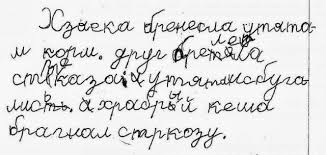 Хзаека бренесла утята-
м корм. друг брелетела
стрказа и утята исбуга-
лись. А храбрый кеша
брагнал старкозу.